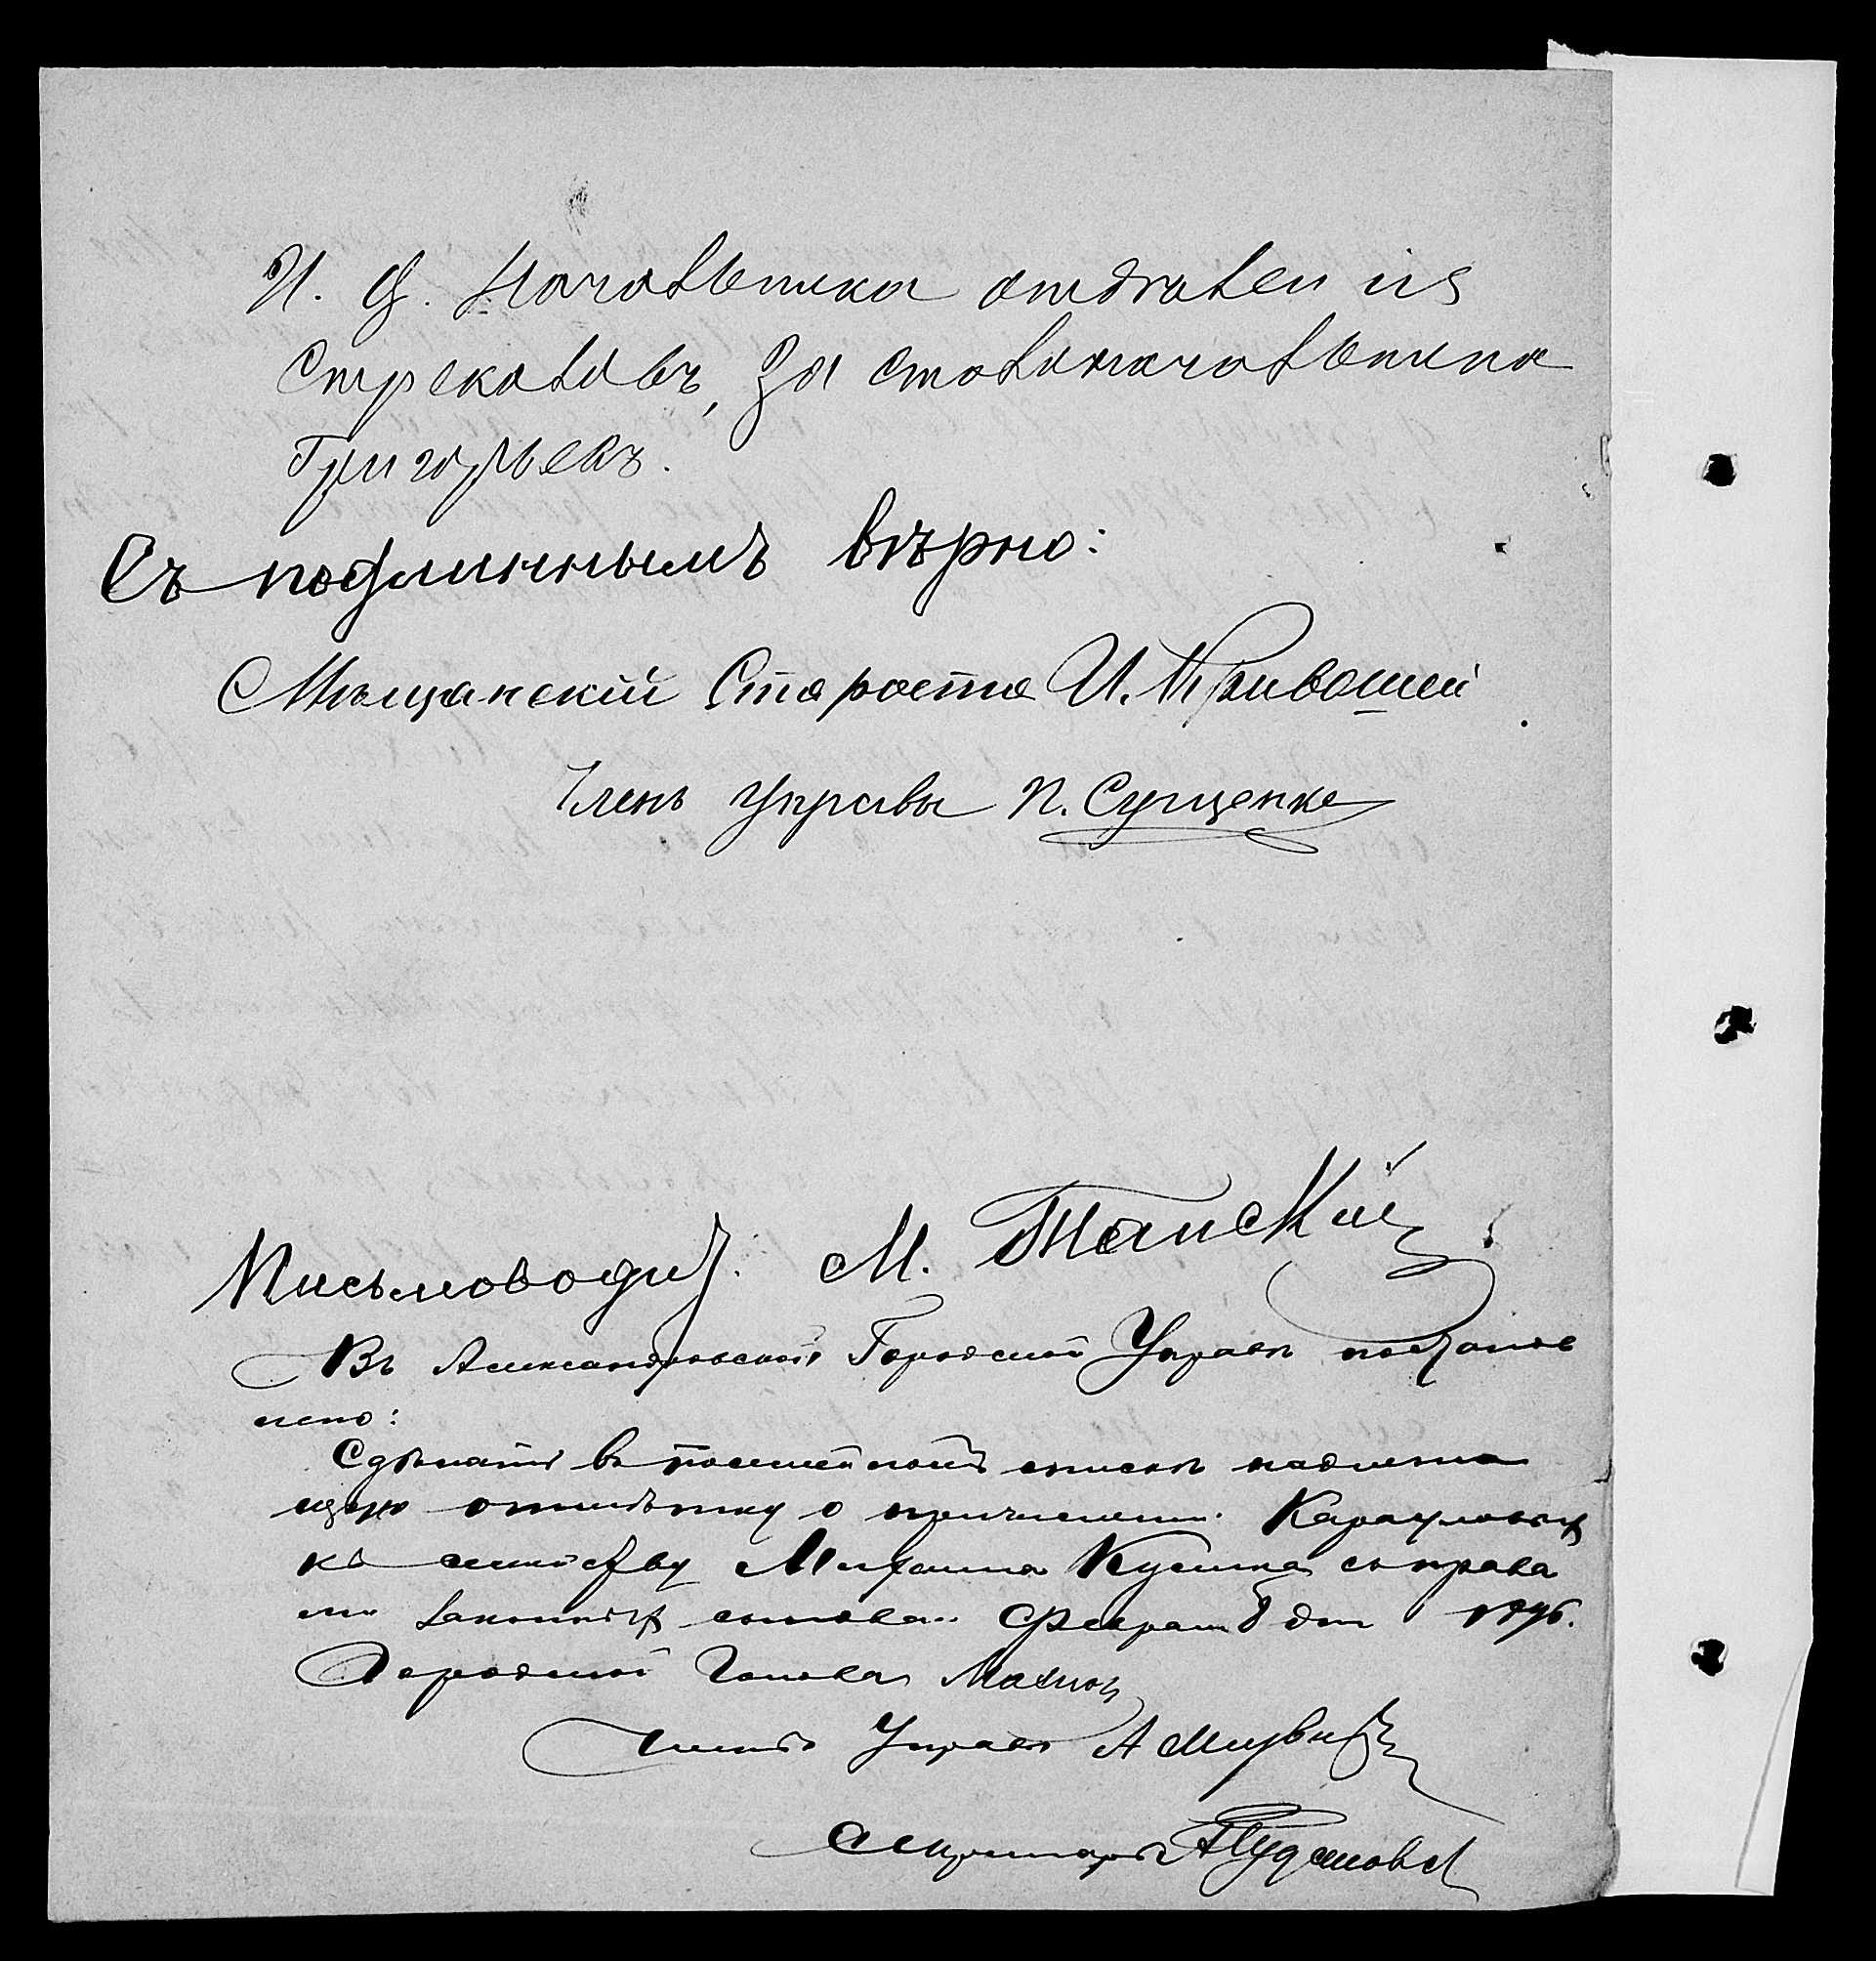 И. д. Начальника отдѣленія
Стрекаловъ, За столоначальника
Григорьевъ.
Съ подлиннымъ вѣрно:
Мѣщанскій Староста И. Кривошей
Членъ Управы П. Сущенко
Письмоводит. М. Танскій
Въ Александровской Городской Управѣ постанов
лено:
Сдѣлать въ посемейномъ спискѣ надлежа
щую отмѣтку о причисленіи Карауловых
къ семейству Михаила Кусика съ права
ми законных сыновей. Февраля 8 дня 1896.
Городской Голова
Членъ Управы А
Секретарь